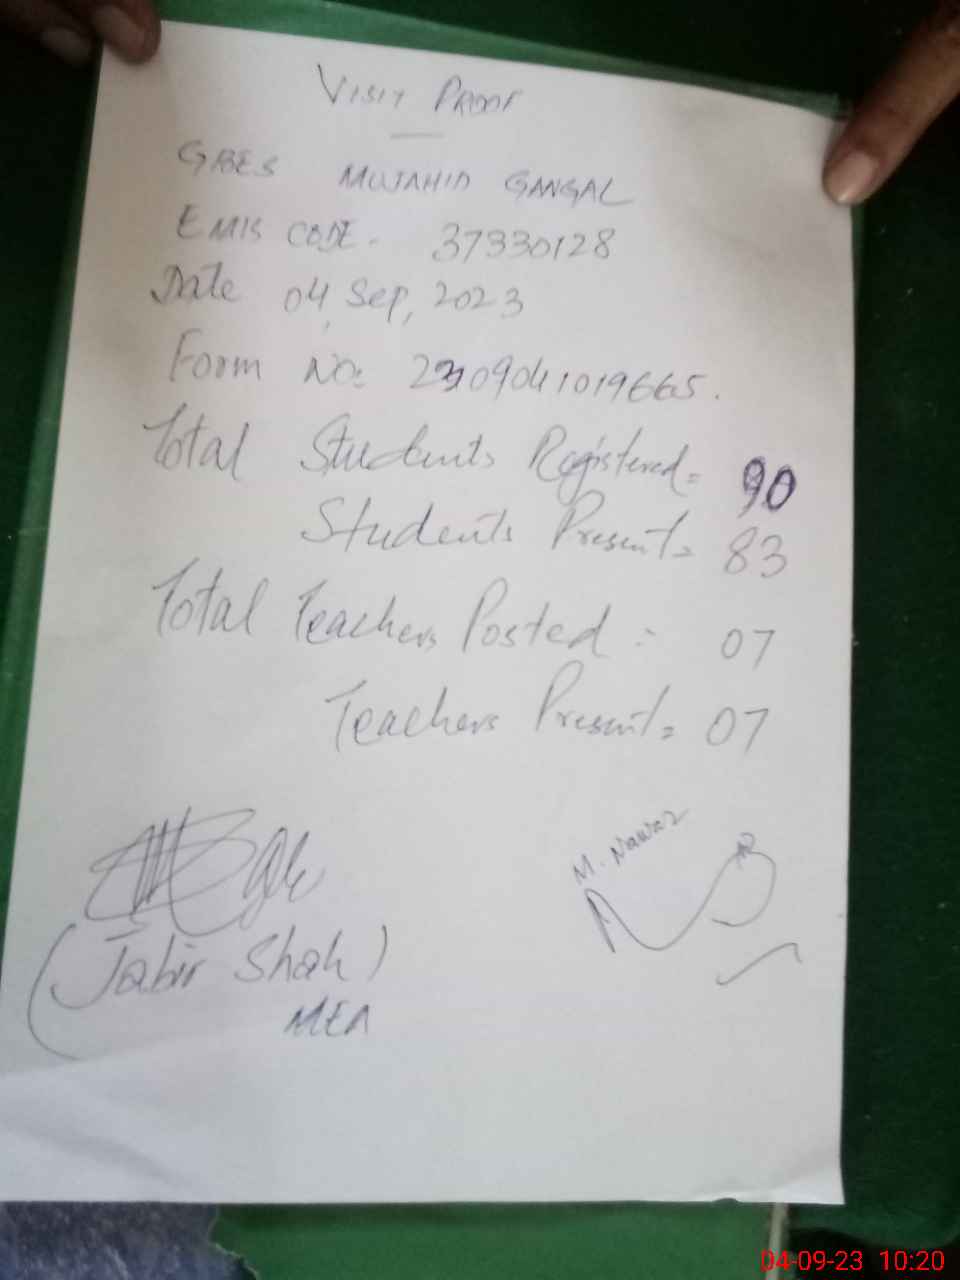 VISIT PROOF
GBES MUJAHID GANGAL
EMIS CODE. 37330128
Date 04, Sep, 2023
Form No: 2309041019665.
Total Students Registered= 90
Students Present= 83
Total Teachers Posted : 07
Teachers Present= 07
M. Nawaz
(Jabir Shah)
MEA
04-09-23 10:20